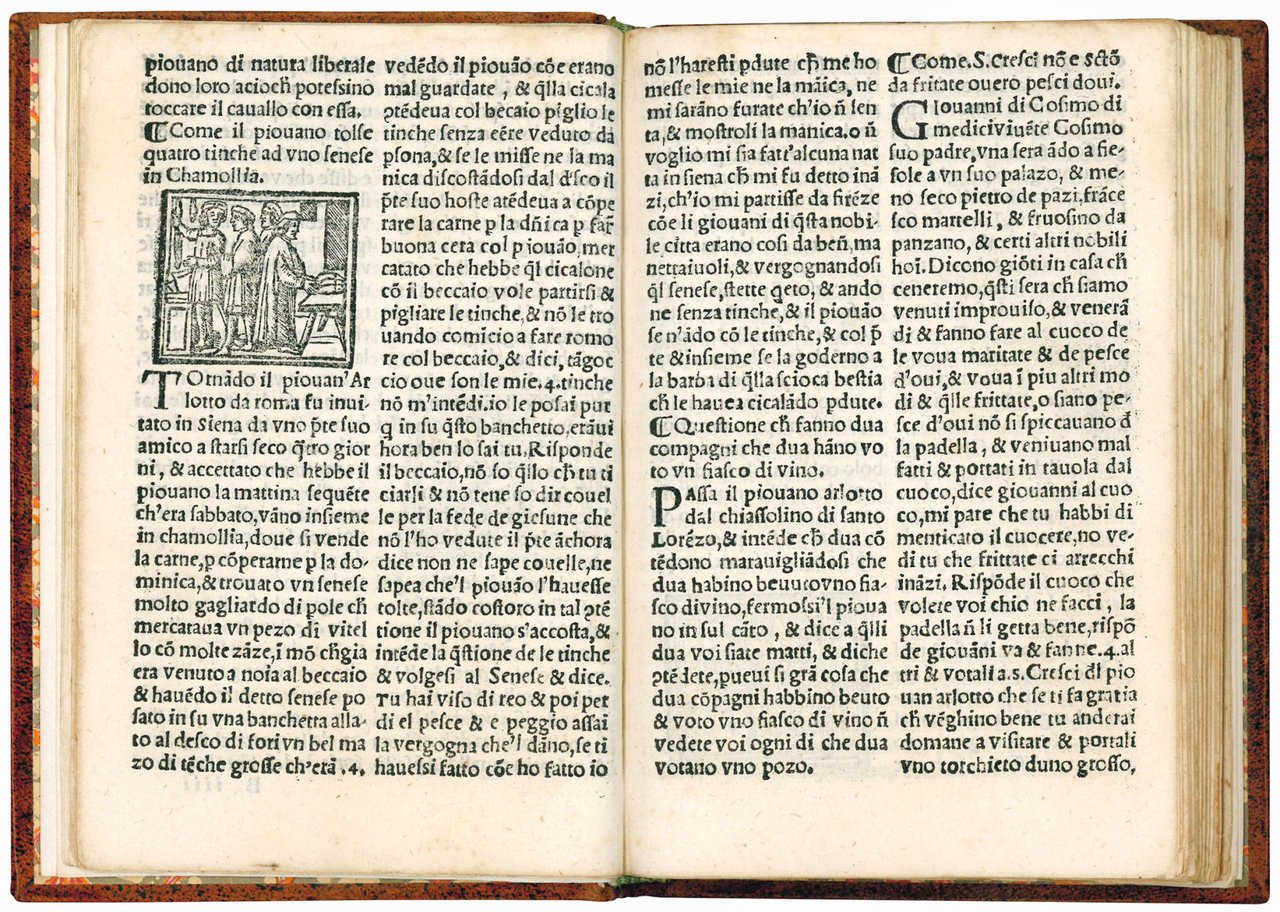 piouano di natura liberale
dono loro acioch̃ potessino
toccare il cauallo con essa.
¶Come il piouano tolse
quatro tinche ad vno senese
in Chamollia.
TOrnãdo il piouan'Ar
lotto da roma fu inui-
tato in Siena da vno p̃te suo
amico a starsi seco q̃tro gior
ni, & accettato che hebbe il
piouano la mattina sequẽte
ch'era sabbato, vãno insieme
in chamollia, doue si vende
la carne, p cõperarne p la do-
minica, & trouato vn senese
molto gagliardo di pole ch̃
mercataua vn pezo di vitel
lo cõ molte zãze, ĩ mõ ch̃gia
era venuto a noia al beccaio
& hauẽdo il detto senese po
sato in su vna banchetta alla-
to al desco di fori vn bel ma
zo di tẽche grosse ch'erã .4.
vedẽdo il piouão cõe erano
mal guardate, & q̃lla cicala
ꝯtẽdeua col beccaio piglio le
tinche senza eẽre veduto da
psona, & se le misse ne la ma
nica discostãdosi dal d̃sco il
p̃te suo hoste atẽdeua a cõpe
rare la carne p la dñica p far̃
buona cera col piouão, mer
catato che hebbe q̃l cicalone
cõ il beccaio vole partirsi &
pigliare le tinche, & nõ le tro
uando comicio a fare romo
re col beccaio, & dici, tãgoc
cio oue son le mie .4. tinche
nõ m'intẽdi. io le posai pur
q in su q̃sto banchetto, erãui
hora ben lo sai tu, Risponde
il beccaio, nõ so q̃llo ch̃ tu ti
ciarli & nõ tene so dir couel
le per la fede de giesune che
nõ l'ho vedute il p̃te ãchora
dice non ne sape couelle, ne
sapea che'l piouão l'hauesse
tolte, stãdo costoro in tal ꝯtẽ
tione il piouano s'accosta, &
intẽde la q̃stione de le tinche
& volgesi al Senese & dice.
Tu hai viso di reo & poi per
di el pesce & e peggio assai
la vergogna che'l dãno, se ti
hauessi fatto cõe ho fatto io
nõ l'haresti pdute ch̃ me ho
messe le mie ne la mãica, ne
mi sarãno furate ch'io ñ sen
ta, & mostroli la manica. o ñ
voglio mi sia fatt'alcuna nat
ta in siena ch̃ mi fu detto inã
zi, ch'io mi partisse da firẽze
cõe li giouani di q̃sta nobi
le citta erano cosi da beñ, ma
nettaiuoli, & vergognandosi
q̃l senese, stette q̃eto, & ando
ne senza tinche, & il piouão
se n'ãdo cõ le tinche, & col p̃
te & insieme se la goderno a
la barba di q̃lla scioca bestia
ch̃ le hauea cicalãdo pdute.
¶ Questione ch̃ fanno dua
compagni che dua hãno vo
to vn fiasco di vino.
PAssa il piouano arlotto
dal chiassolino di santo
Lorẽzo, & intẽde ch̃ dua cõ
tẽdono marauigliãdosi che
dua habino beuuto vno fia-
sco di vino, fermossi'l pioua
no in sul cãto, & dice a q̃lli
dua voi siate matti, & di che
ꝯtẽdete, pueui si grã cosa che
dua cõpagni habbino beuto
& voto vno fiasco di vino ñ
vedete voi ogni di che dua
votano vno pozo.
¶Come .S. Cresci nõ e sctõ
da fritate ouero pesci doui.
GIouanni di Cosimo di
medici viuẽte Cosimo
suo padre, vna sera ãdo a fie-
sole a vn suo palazo, & me-
no seco pietro de pazi, frãce
sco martelli, & fruosino da
panzano, & certi altri nobili
hoĩ. Dicono giõti in casa ch̃
ceneremo, q̃sti sera ch̃ siamo
venuti improuiso, & venerã
di & fanno fare al cuoco de
le voua maritate & de pesce
d'oui, & voua ĩ piu altri mo
di & q̃lle frittate, o siano pe-
sce d'oui nõ si spiccauano d̃
la padella, & veniuano mal
fatti & portati in tauola dal
cuoco, dice giouanni al cuo
co, mi pare che tu habbi di
menticato il cuocere, no ve-
di tu che frittate ci arrecchi
inãzi. Rispõde il cuoco che
volete voi chio ne facci, la
padella ñ li getta bene, rispõ
de giouãni va & fanne .4. al
tri & votali a .s. Cresci d̃l pio
uan arlotto che se ti fa gratia
ch̃ vẽghino bene tu anderai
domane a visitare & portali
vno torchieto duno grosso,